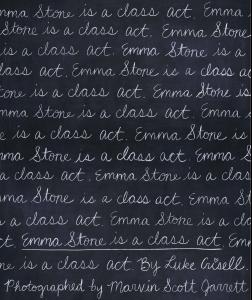 mma Stone is a class act. Emma
Stone is a class act. Emma Stone
is a class act. Emma Stone is a
class act. Emma Stone is a class
act. Emma Stone is a class act.
Emma Stone is a class act. Emma
Stone is a class act. Emma Stone
is a class act. Emma Stone is a
class act. Emma Stone is a class
mma Stone is a class act. Emma
is a class act. Emma Stone is a
act. Emma Stone is a class act.
one is a class act. By Luke Crisell.
Photographed by Marvin Scott Jarrett.